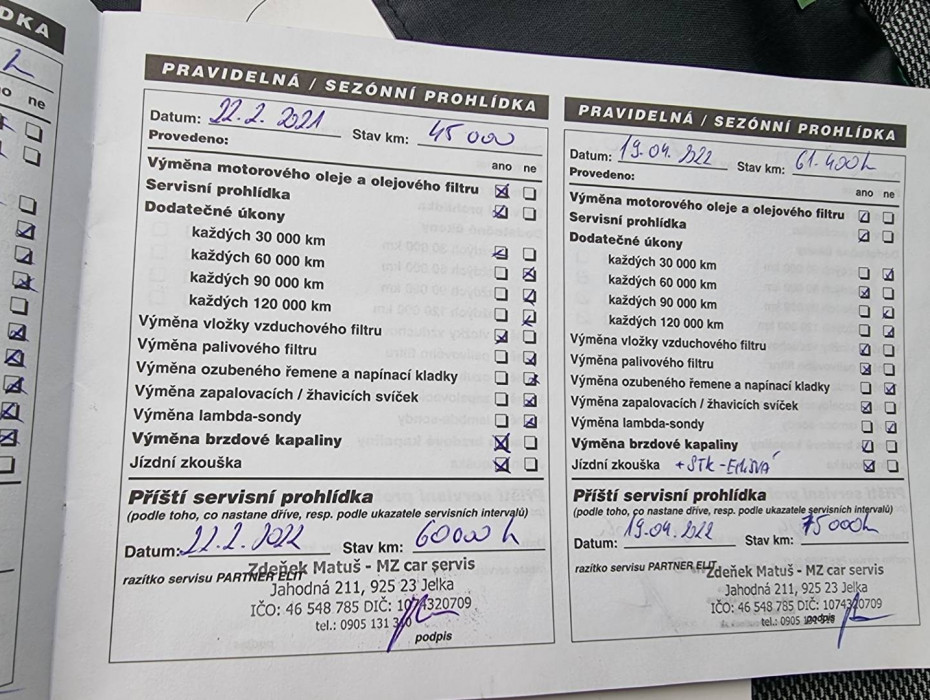 DKA
o ne
PRAVIDELNÁ / SEZÓNNÍ PROHLÍDKA
Datum: 22.2. 2021 Stav km: 45 000
Provedeno: ano ne
Výměna motorového oleje a olejového filtru
Servisní prohlídka
Dodatečné úkony
každých 30 000 km
každých 60 000 km
každých 90 000 km
každých 120 000 km
Výměna vložky vzduchového filtru
Výměna palivového filtru
Výměna ozubeného řemene a napínací kladky
Výměna zapalovacích / žhavicích svíček
Výměna lambda-sondy
Výměna brzdové kapaliny
Jízdní zkouška
Příští servisní prohlídka
(podle toho, co nastane dříve, resp. podle ukazatele servisních intervalů)
Datum: 22.2. 2022 Stav km: 60000
razítko servisu PARTNER ELIT
Zdeňek Matuš - MZ car servis
Jahodná 211, 925 23 Jelka
IČO: 46 548 785 DIČ: 1074320709
tel.: 0905 131
podpis
PRAVIDELNÁ / SEZÓNNÍ PROHLÍDKA
Datum: 19.04. 2022 Stav km: 61.400
Provedeno: ano ne
Výměna motorového oleje a olejového filtru
Servisní prohlídka
Dodatečné úkony
každých 30 000 km
každých 60 000 km
každých 90 000 km
každých 120 000 km
Výměna vložky vzduchového filtru
Výměna palivového filtru
Výměna ozubeného řemene a napínací kladky
Výměna zapalovacích / žhavicích svíček
Výměna lambda-sondy
Výměna brzdové kapaliny
Jízdní zkouška +STK-
Příští servisní prohlídka
(podle toho, co nastane dříve, resp. podle ukazatele servisních intervalů)
Datum: 19.04. 2022 Stav km: 75000
razítko servisu PARTNER ELIT
Zdeňek Matuš - MZ car servis
Jahodná 211, 925 23 Jelka
IČO: 46 548 785 DIČ: 1074320709
tel.: 0905
podpis